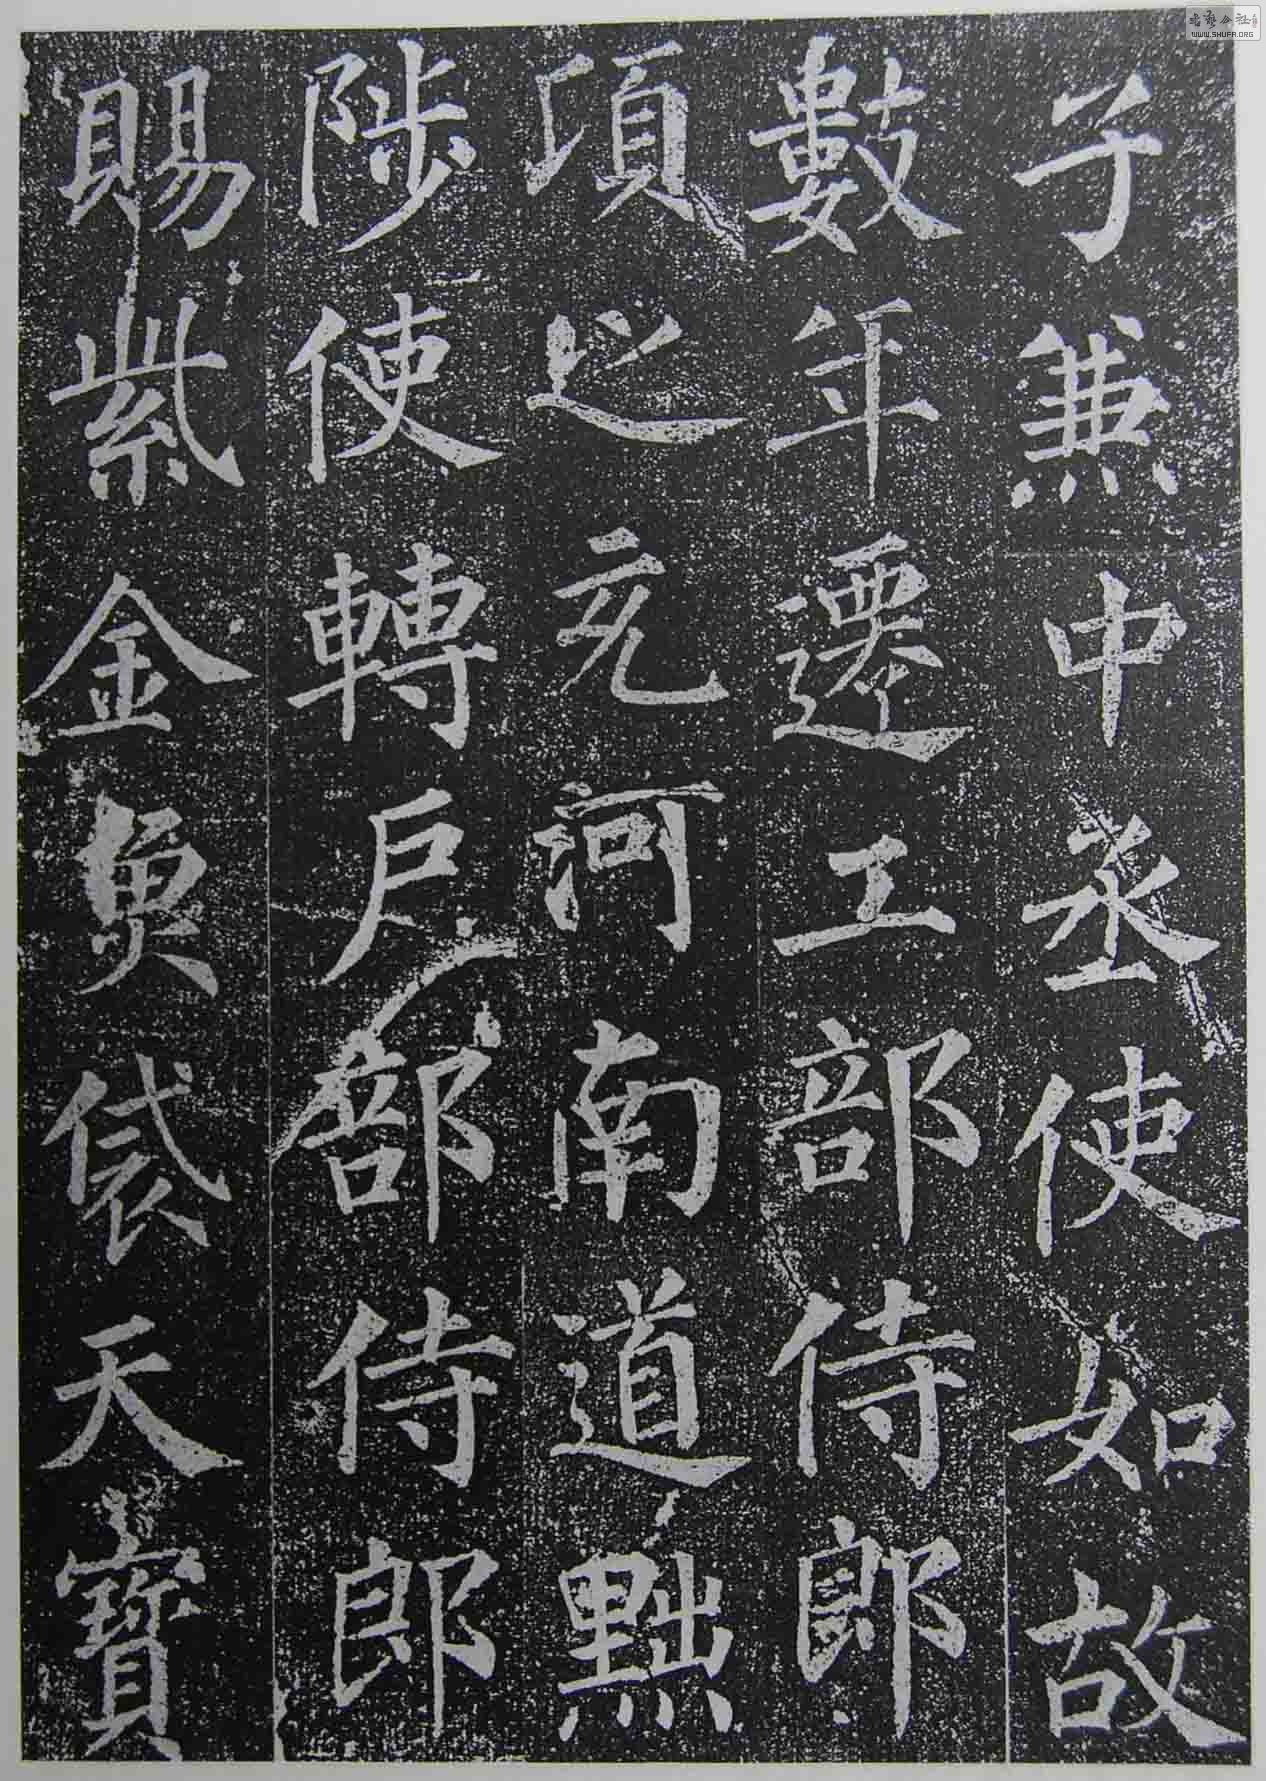 子兼中丞使如故
數年遷工部侍郎
項之充河南道黜
陟使轉戶部侍郎
賜紫金魚袋天寶
書藝公社
WWW.SHUFA.ORG